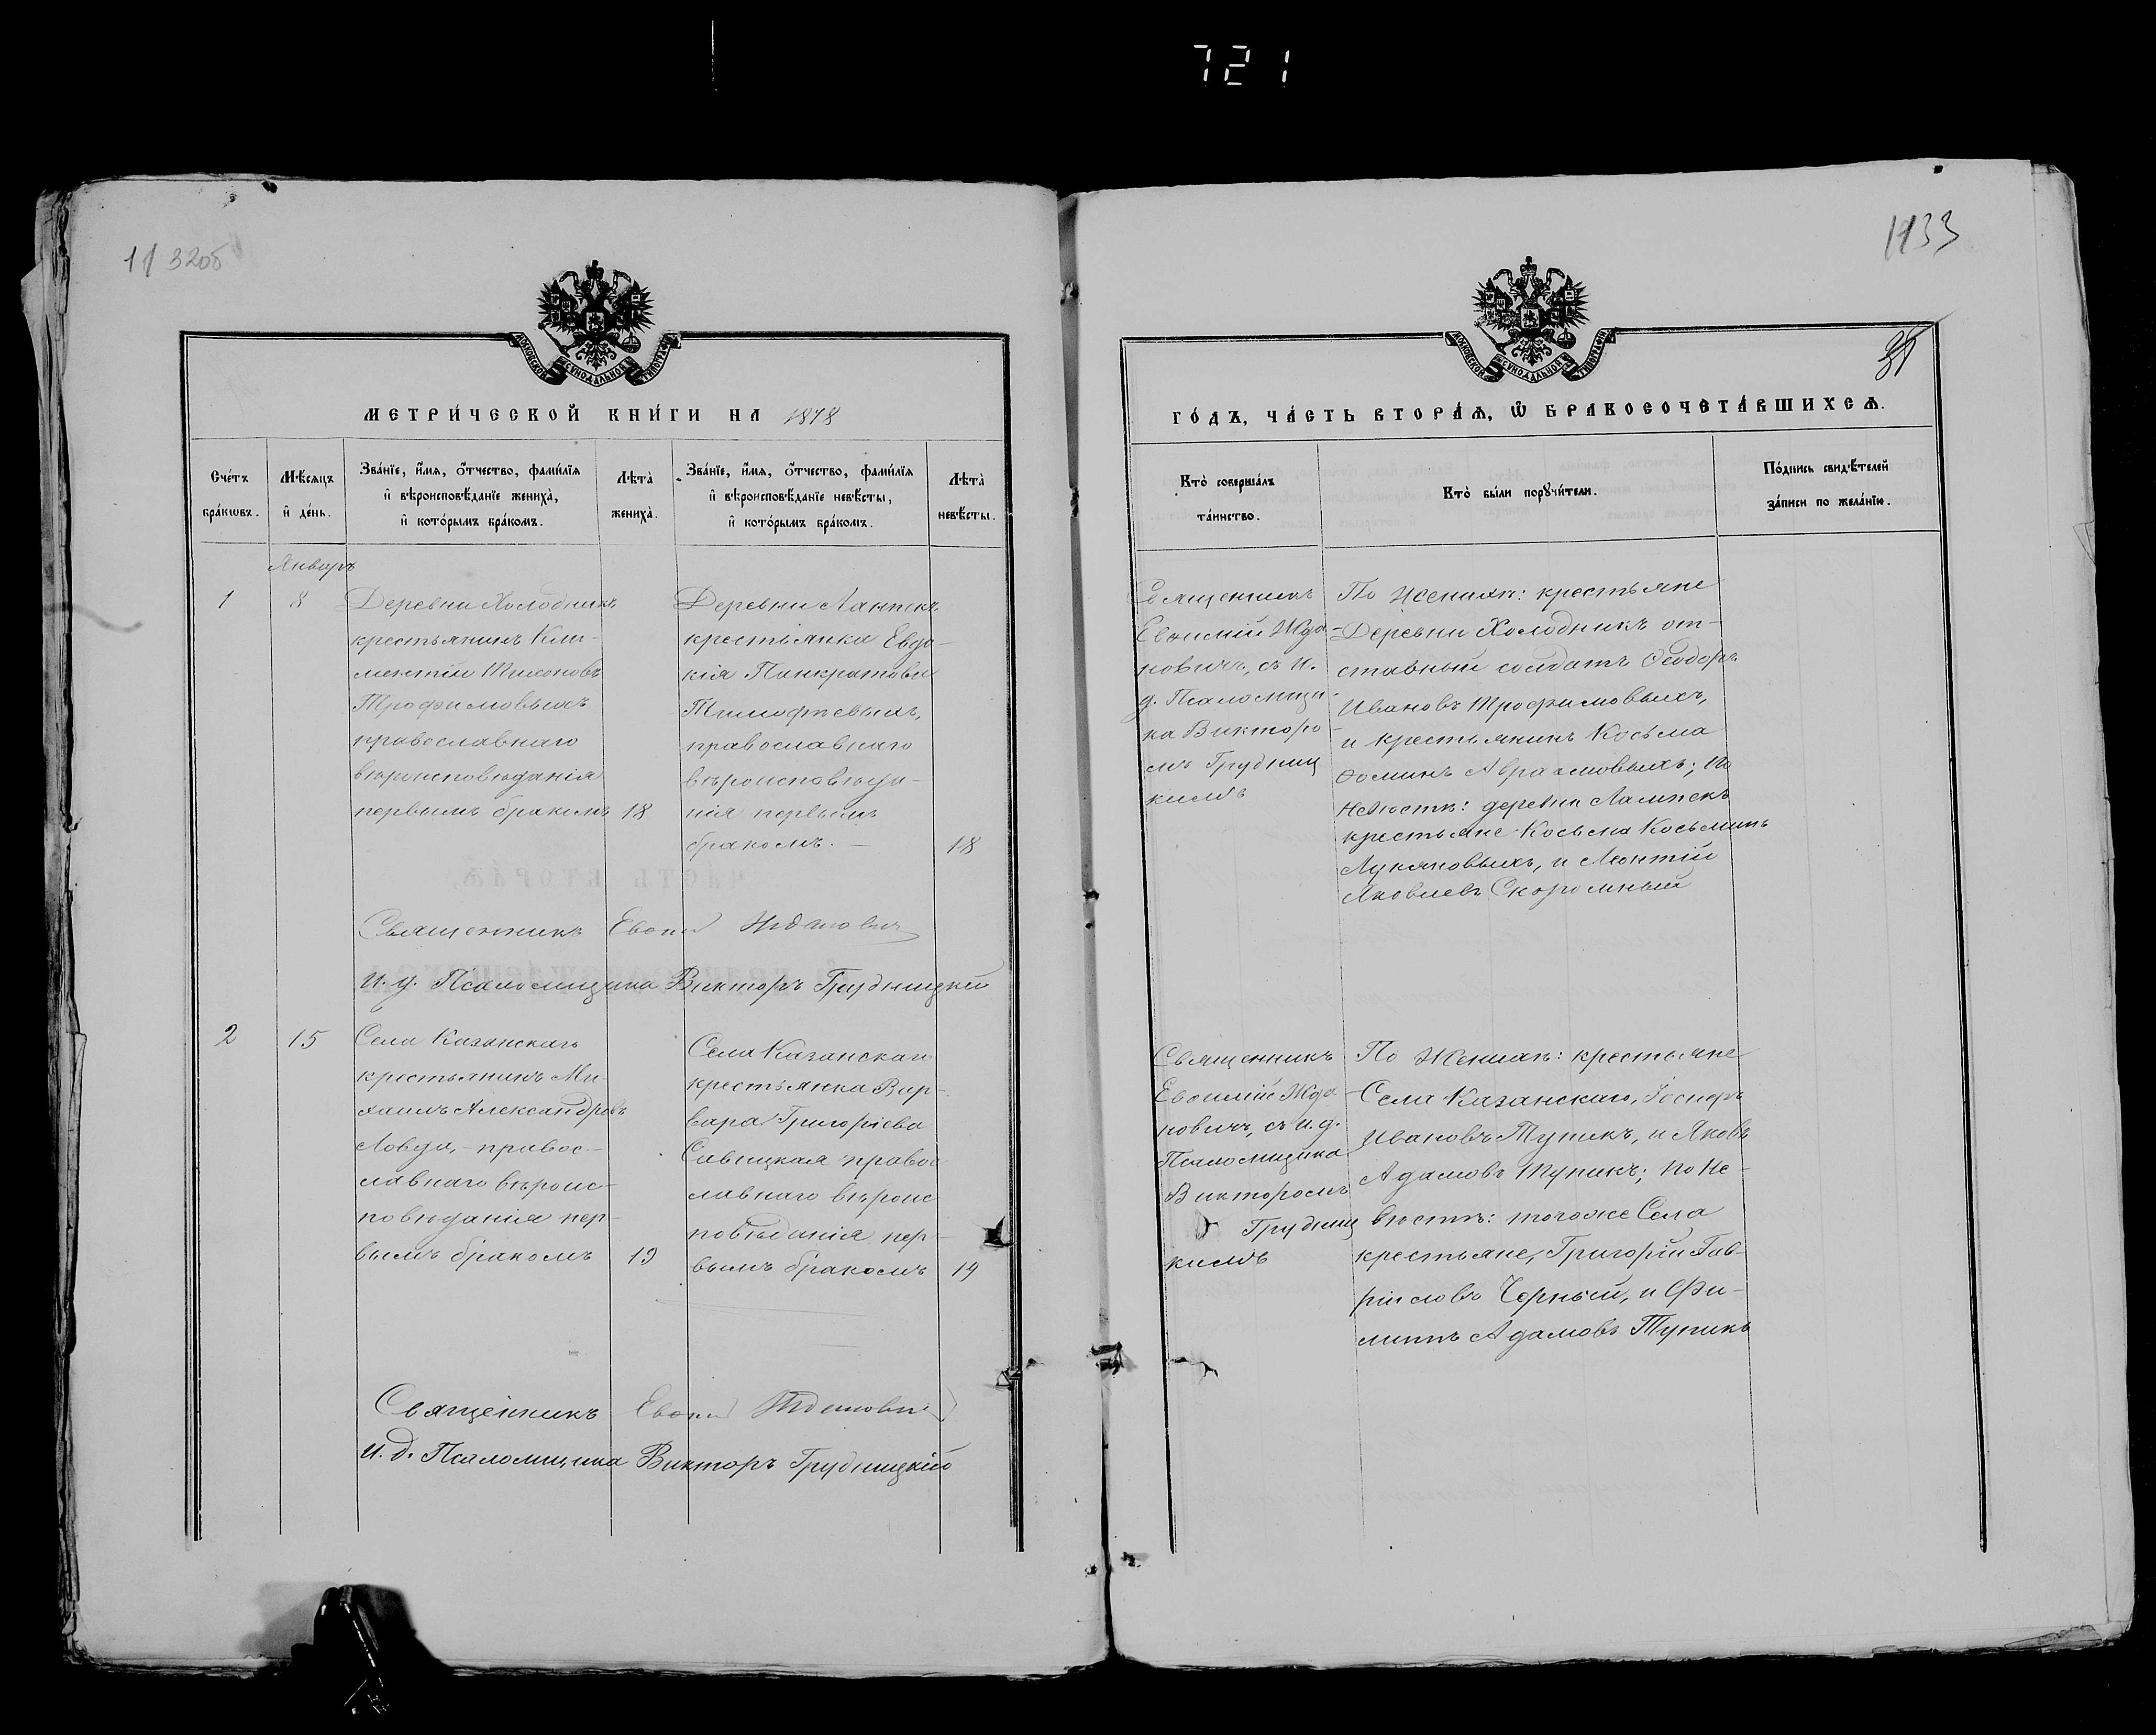 721
11 320б
1133
МОСКОВСКОЙ СѴНОДАЛЬНОЙ ТИПОГРАФІИ
МЕТРИ́ЧЕСКОЙ КНИ́ГИ НА 1878
Сче́тъ бра́кѡвъ.
Мѣ́сяцъ и҆ де́нь.
Зва́нїе, и҆́мѧ, ѻ҆́тчество, фами́лїѧ
и҆ вѣроисповѣ́данїе жениха̀,
и҆ кото́рымъ бра́комъ.
Лѣта̀ жениха̀.
Зва́нїе, и҆́мѧ, ѻ҆́тчество, фами́лїѧ
и҆ вѣроисповѣ́данїе невѣ́сты,
и҆ кото́рымъ бра́комъ.
Лѣта̀ невѣ́сты.
Январь
1
8
Деревни Холодникъ
крестьянинъ Кли-
ментій Тихоновъ
Трофимовыхъ
православнаго
вѣроисповѣданія
первымъ бракомъ
18
Деревни Лампекъ
крестьянка Евдо-
кія Панкратова
Тимофѣевыхъ,
православнаго
вѣроисповѣда-
нія первымъ
бракомъ. —
18
Священникъ Евѳимій Ждановичъ
И. д. Псаломщика Викторъ Грудницкій
2
15
Села Казанскаго
крестьянинъ Ми-
хаилъ Александровъ
Ловда, - правос-
лавнаго вѣроис-
повѣданія пер-
вымъ бракомъ
19
Села Казанскаго
крестьянка Вар-
вара Григоріева
Савицкая правос
лавнаго вѣроис
повѣданія пер-
вымъ бракомъ
19
Священникъ Евѳимій Ждановичъ
И. д. Псаломщика Викторъ Грудницкій
МОСКОВСКОЙ СѴНОДАЛЬНОЙ ТИПОГРАФІИ
ГО́ДЪ, ЧА́СТЬ ВТОРА́Ѧ, Ѡ҆ БРАКОСОЧЕТА́ВШИХСѦ.
Кто̀ соверша́лъ
та́инство.
Кто̀ бы́ли порꙋчи́тели.
По́дпись свидѣ́телей
за́писи по жела́нїю.
Священникъ
Евѳимій Жда-
новичъ, съ И.
д. Псаломщи-
ка Викторо-
мъ Грудниц
кимъ
По Женихѣ: крестьяне
Деревни Холодникъ от-
ставный солдатъ Ѳеодоръ
Ивановъ Трофимовыхъ,
и крестьянинъ Косьма
Ѳоминъ Авраамовыхъ; По
Невѣстѣ: деревни Лампекъ
крестьяне Косьма Косьминъ
Лукяновыхъ, и Леонтій
Яковлевъ Скоромный
Священникъ
Евѳимій Жда-
новичъ, съ и. д.
Псаломщика
Викторомъ
Грудниц
кимъ
По Женихѣ: крестьяне
Села Казанскаго, Іосифъ
Ивановъ Тупикъ, и Яковъ
Адамовъ Тупикъ; По Не-
вѣстѣ: тогоже Села
крестьяне, Григорій Гав-
ріиловъ Чорный, и Фи-
липпъ Адамовъ Тупикъ